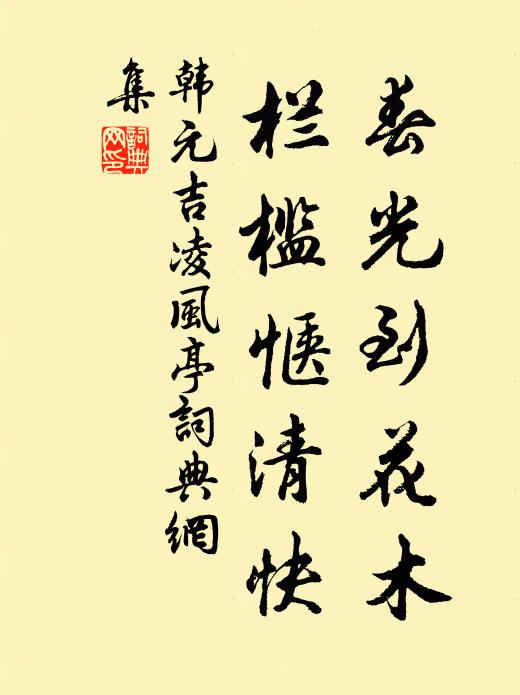 春光到花木
栏槛惬清快
韩元吉凌風亭詞典網
集
詞典網印